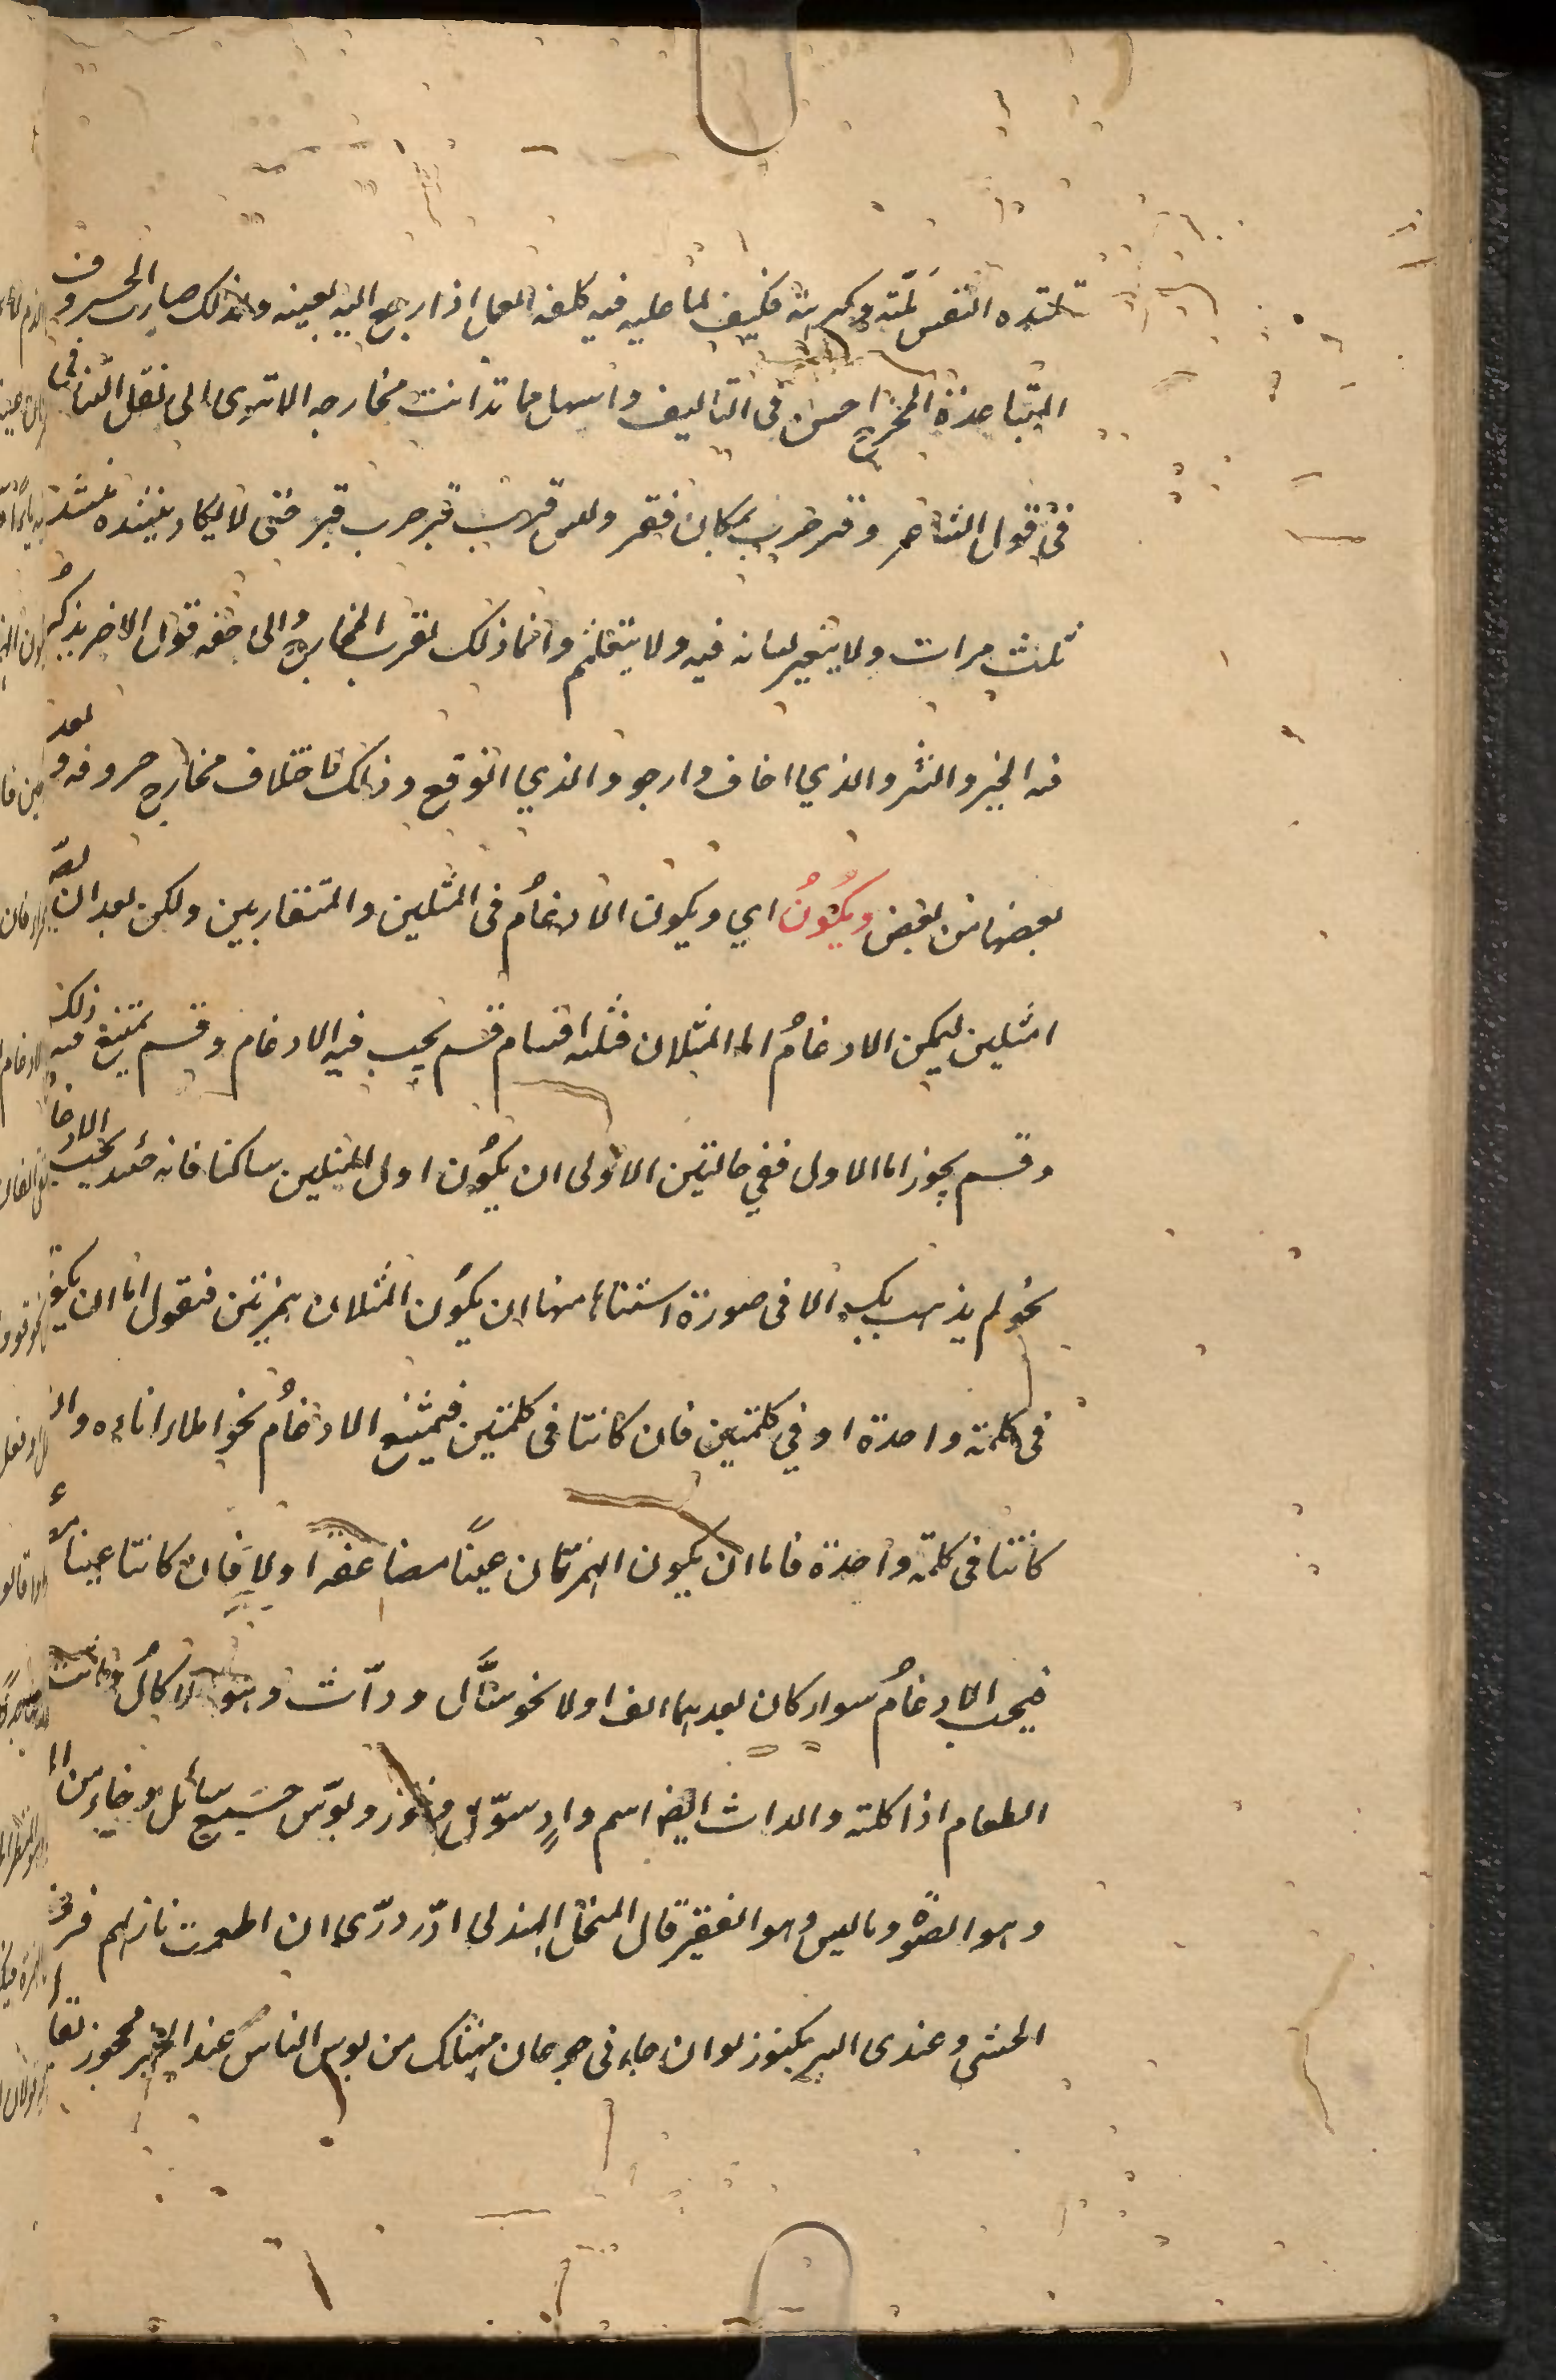 تلتذه النفس لمّته وكريته فكيف لما عليه فيه كلفه العمل اذا رجع اليه بعينه ولذلك صارت الحروف
المتباعدة المخرج احسن فى التاليف واسهل مما تدانت مخارجه الا ترى الى ثقل التنافى
فى قول الشاعر وقبر حرب بمكان قفر وليس قرب قبر حرب قبر حتى لا يكاد ينشده منشد
ثلث مرات ولا يتغير لسانه فيه ولا يتلعثم وانما ذلك لقرب المخارج والى خفه قول الاخر يذكر
فيه الخير والشر والذي اخاف وارجو والذي اتوقع وذلك لاختلاف مخارج حروفه وبعد
بعضها من بعض ويكون اي ويكون الادغام فى المثلين والمتقاربين ولكن بعد ان يصير
امثلين ليمكن الادغام اما المثلان فثلثه اقسام قسم يجب فيه الادغام وقسم يمتنع فيه ذلك
وقسم يجوز اما الاول ففي حالتين الاولى ان يكون اول المثلين ساكنا فانه حينئذ يجب الادغام
نحو لم يذهب بكر الا فى صورة استثناء منها ان يكون المثلان همزتين فنقول اما ان يكو
فى كلمة واحدة او في كلمتين فان كانتا فى كلمتين فيمتنع الادغام نحو املاء اناءه وان
كانتا فى كلمة واحدة فاما ان يكون الهمزتان عينًا مضاعفه او لا فان كانتا عينا
فيجب الادغام سواء كان بعدهما الف او لا نحو سئّال ودأّث وهو لاكال
الطعام اذا اكلته والداث ايضا اسم وادٍ سوّل وخوز وبوّس جميع سائل وخايز من
وهو الضوء وبائس وهو الفقير قال المتنخل الهذلي لا درّ درّي ان اطعمت نازلهم قرف
الحتى وعندى البر مكنوز لو ان جاءنى جوعان مهتلك من بوس الناس عند الخير محجوز